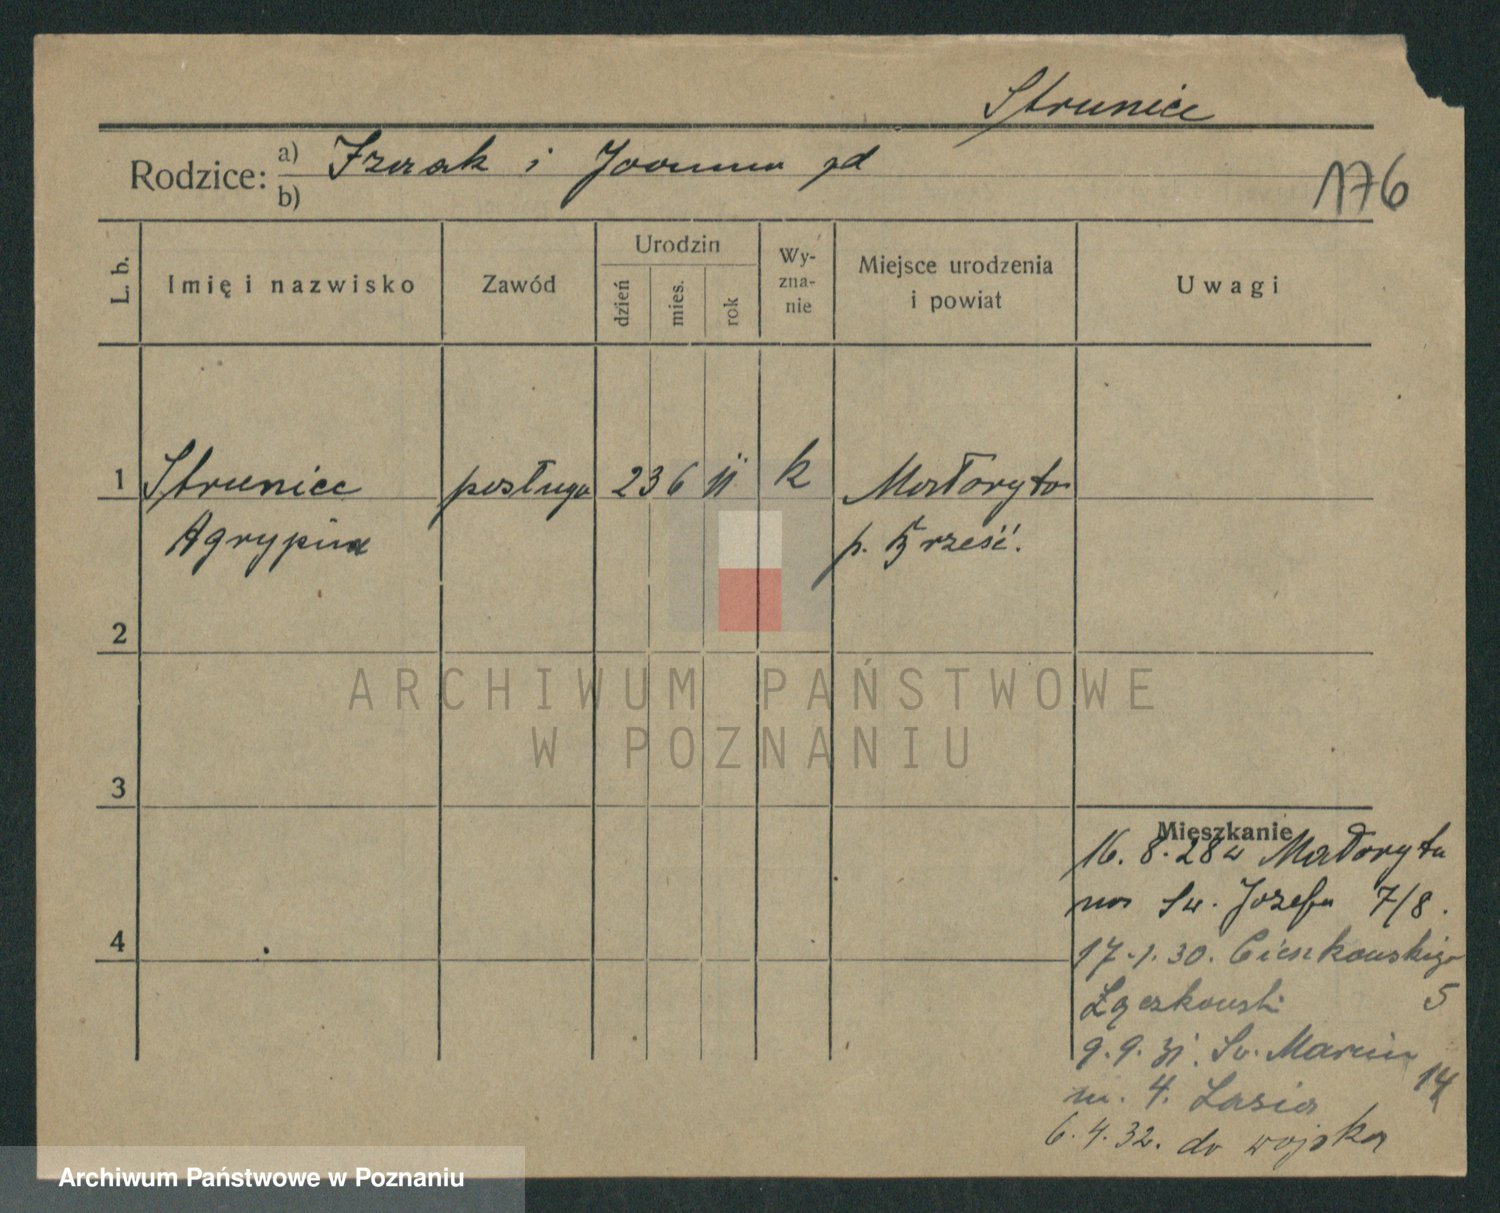 Strunice
Rodzice: a) Izaak i Joanna
b)
176
L. b.
Imię i nazwisko
Zawód
Urodzin
dzień
mies.
rok
Wy-
zna-
nie
Miejsce urodzenia
i powiat
Uwagi
1 Strunice posługa 23 6 11 k Małoryta
Agrypina p. Brześć.
2
ARCHIWUM PAŃSTWOWE
W POZNANIU
3
Mieszkanie
16. 8. 28 z Małoryta
na Św. Józefa 7/8.
17.1.30. Cienkowskiego
Łączkowski 5
9.9.31. Św. Marcin
14
m. 4. Lasia
6.4.32. do wojska
4
Archiwum Państwowe w Poznaniu